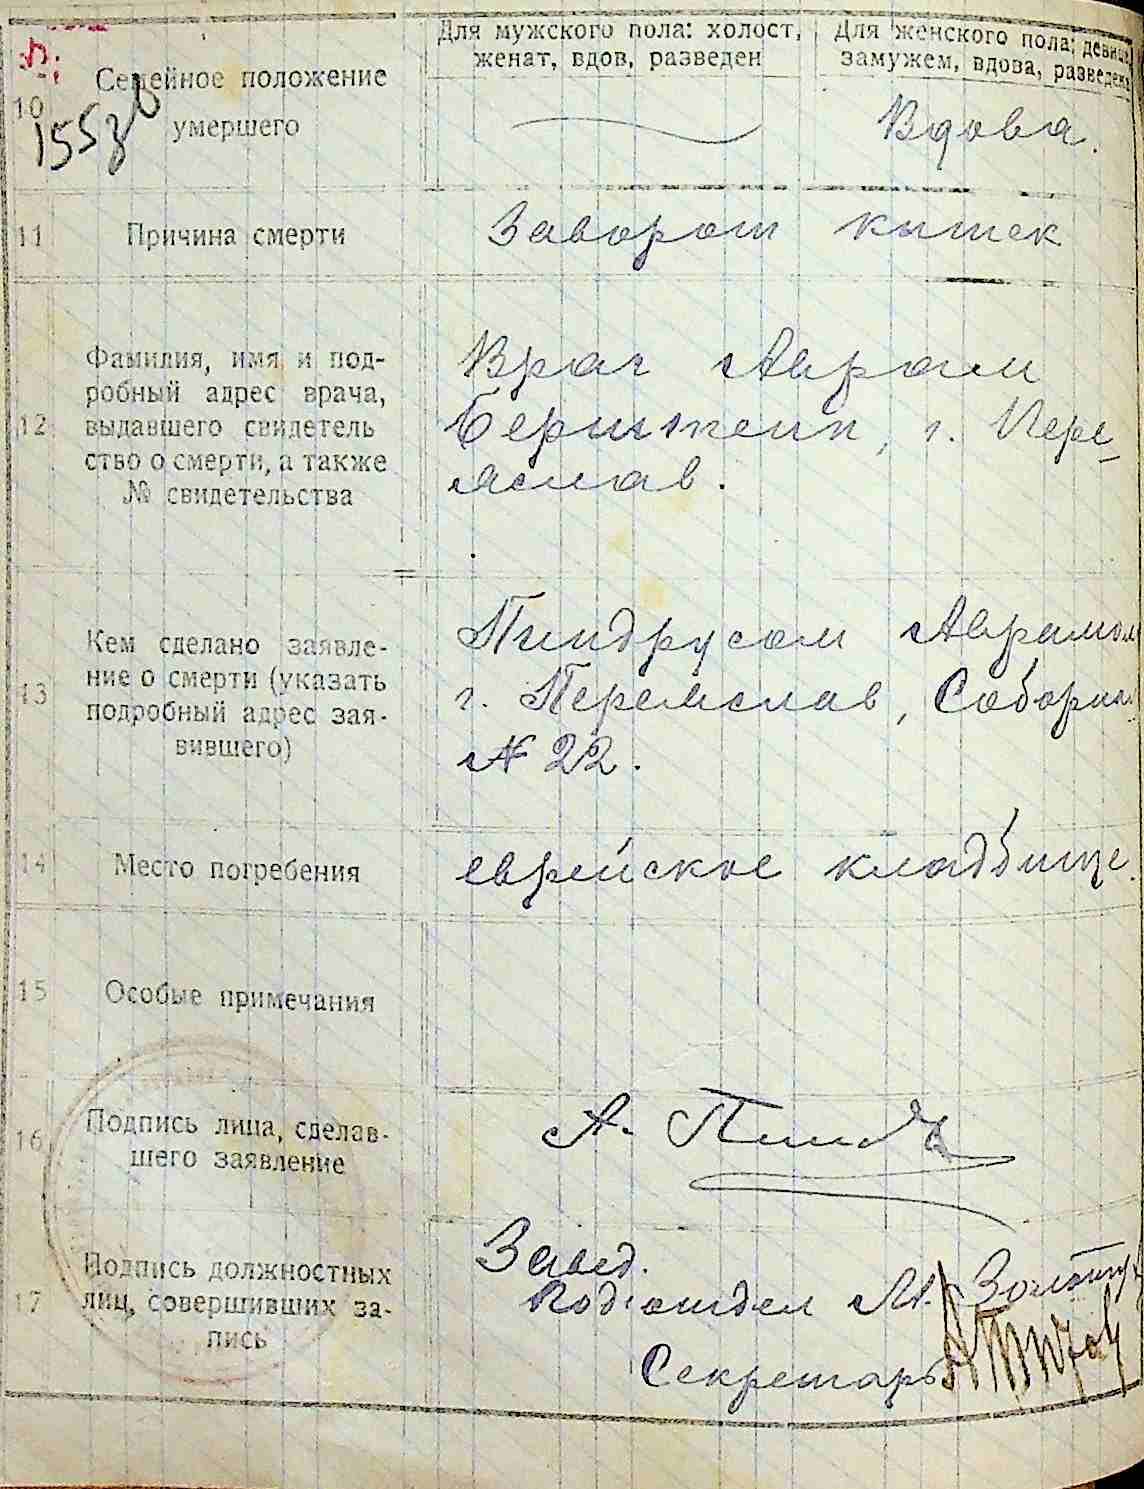 Для мужского пола: холост,
женат, вдов, разведен
Для женского пола: девица,
замужем, вдова, разведена
10
Семейное положение
умершего
Вдова.
11
Причина смерти
Заворот кишек
12
Фамилия, имя и под-
робный адрес врача,
выдавшего свидетель
ство о смерти, а также
№ свидетельства
Врач Авром
Бернштейн, г. Пере
яслав.
13
Кем сделано заявле-
ние о смерти (указать
подробный адрес зая-
вившего)
Пиндрусом Аврамом
г. Переяслав, Соборная
№ 22.
14
Место погребения
еврейское кладбище.
15
Особые примечания
16
Подпись лица, сделав-
шего заявление
А. Пинд
17
Подпись должностных
лиц, совершивших за-
пись
Завед.
Подотдел М.
Секретарь